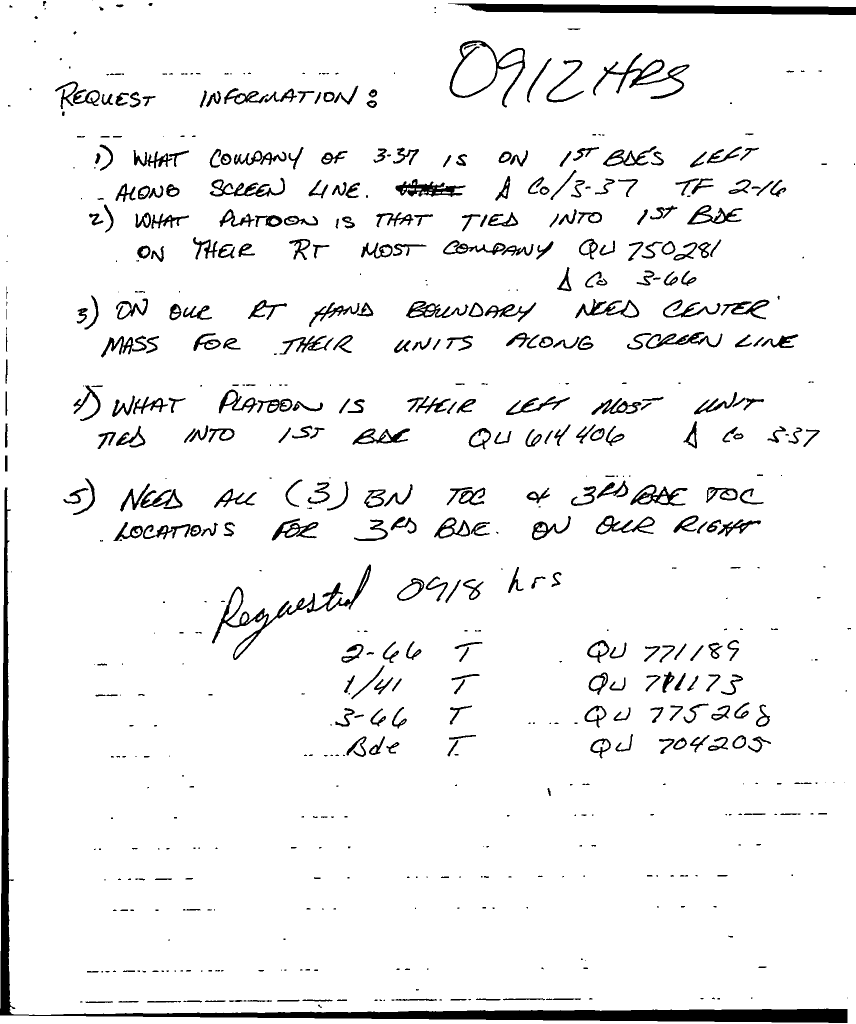 0912 HRS
REQUEST INFORMATION:
1) WHAT COMPANY OF 3-37 IS ON 1ST BDE'S LEFT
ALONG SCREEN LINE. Δ Co/3-37 TF 2-16
2) WHAT PLATOON IS THAT TIED INTO 1ST BDE
ON THEIR RT MOST COMPANY QU 750281
Δ Co 3-66
3) ON OUR RT HAND BOUNDARY NEED CENTER
MASS FOR THEIR UNITS ALONG SCREEN LINE
4) WHAT PLATOON IS THEIR LEFT MOST UNIT
TIED INTO 1ST BDE QU 614406 Δ Co 3-37
5) NEED ALL (3) BN TOC & 3RD BDE TOC
LOCATIONS FOR 3RD BDE. ON OUR RIGHT
Requested 0918 hrs
2-66 T QU 771189
1/41 T QU 711173
3-66 T QU 775268
Bde T QU 704205